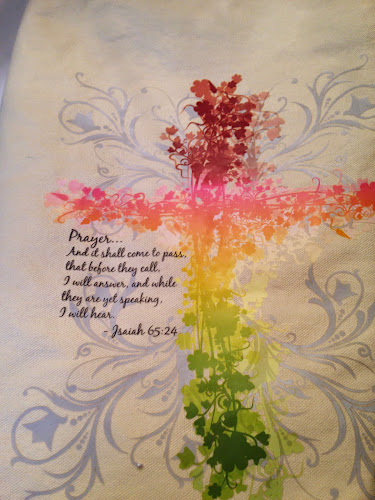 Prayer...
And it shall come to pass,
that before they call,
I will answer, and while
they are yet speaking,
I will hear.
- Isaiah 65:24